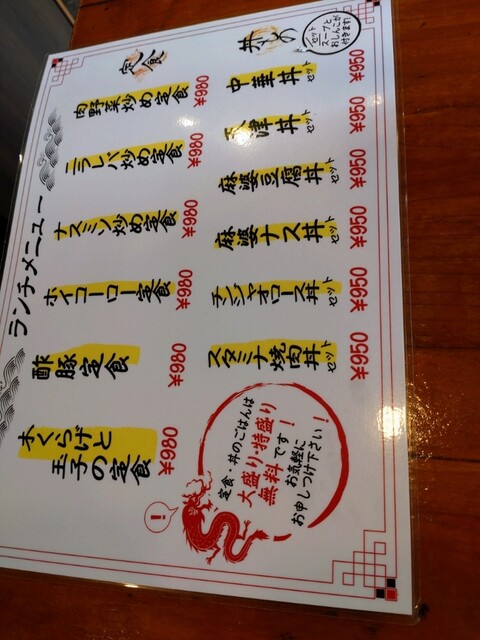 ランチメニュー
定食
肉野菜炒め定食 ¥980
ニラレバ炒め定食 ¥980
ナスミソ炒め定食 ¥980
ホイコーロー定食 ¥980
酢豚定食 ¥980
木くらげと
玉子の定食 ¥980
丼もの
セット
スープと
おしんこが
付きます!
中華丼セット ¥950
天津丼セット ¥950
麻婆豆腐丼セット ¥950
麻婆ナス丼セット ¥950
チンジャオロース丼セット ¥950
スタミナ焼肉丼セット ¥950
定食・丼のごはんは
大盛り・特盛り
無料です!
お気軽に
お申しつけ下さい!
!